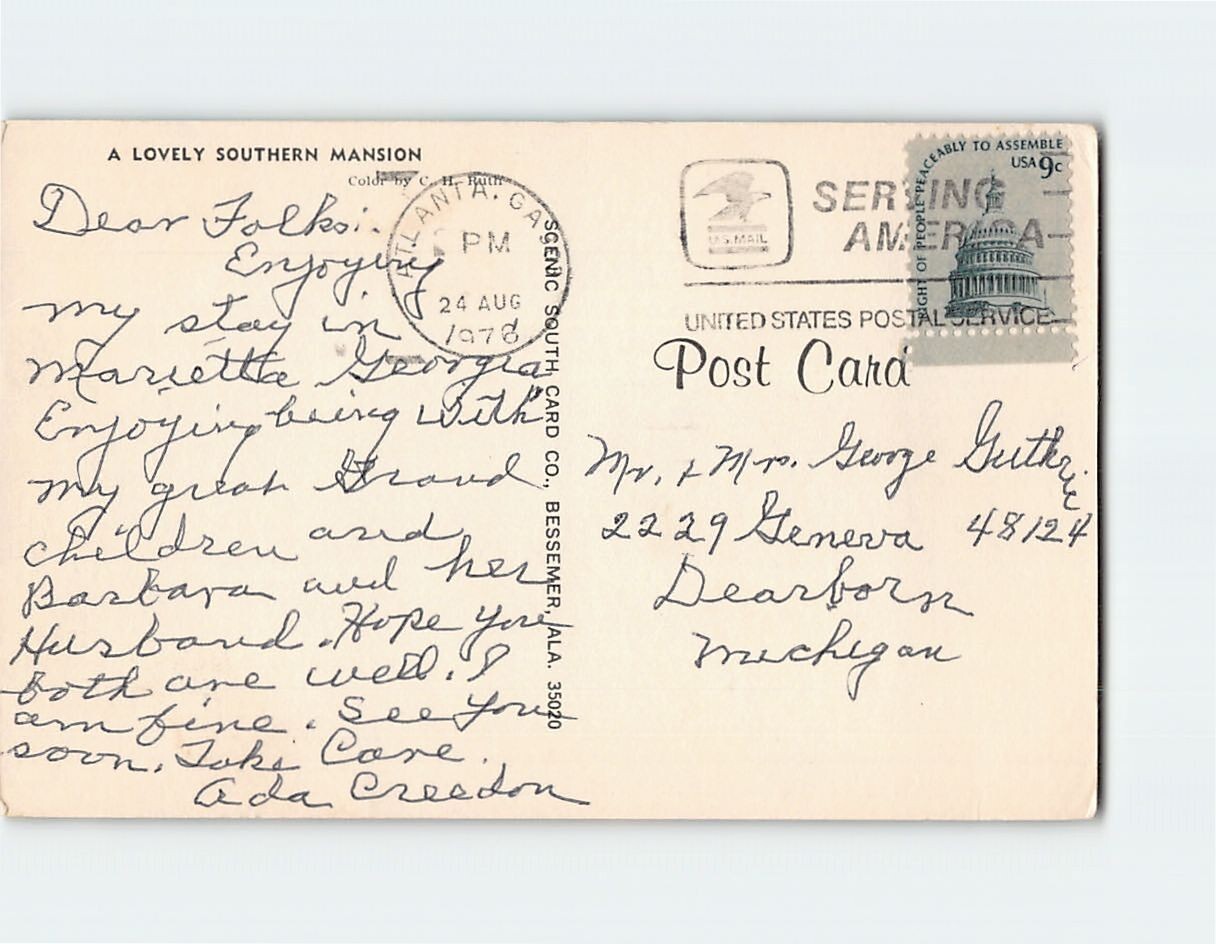 A LOVELY SOUTHERN MANSION
Color by C. H. Ruth
Dear Folks:.
Enjoying
my stay in
Marietta Georgia
Enjoying being with
my great Grand
children and
Barbara and her
Husband. Hope you
both are well. I
am fine. See you
soon. Take Care.
Ada Creedon
ATLANTA, GA
PM
24 AUG
1978
SCENIC SOUTH CARD CO., BESSEMER, ALA. 35020
U.S. MAIL
SERVING
AMERICA
UNITED STATES POSTAL SERVICE
RIGHT OF PEOPLE PEACEABLY TO ASSEMBLE
USA 9c
Post Card
Mr. & Mrs. George Guthrie
2229 Geneva 48124
Dearborn
Michigan